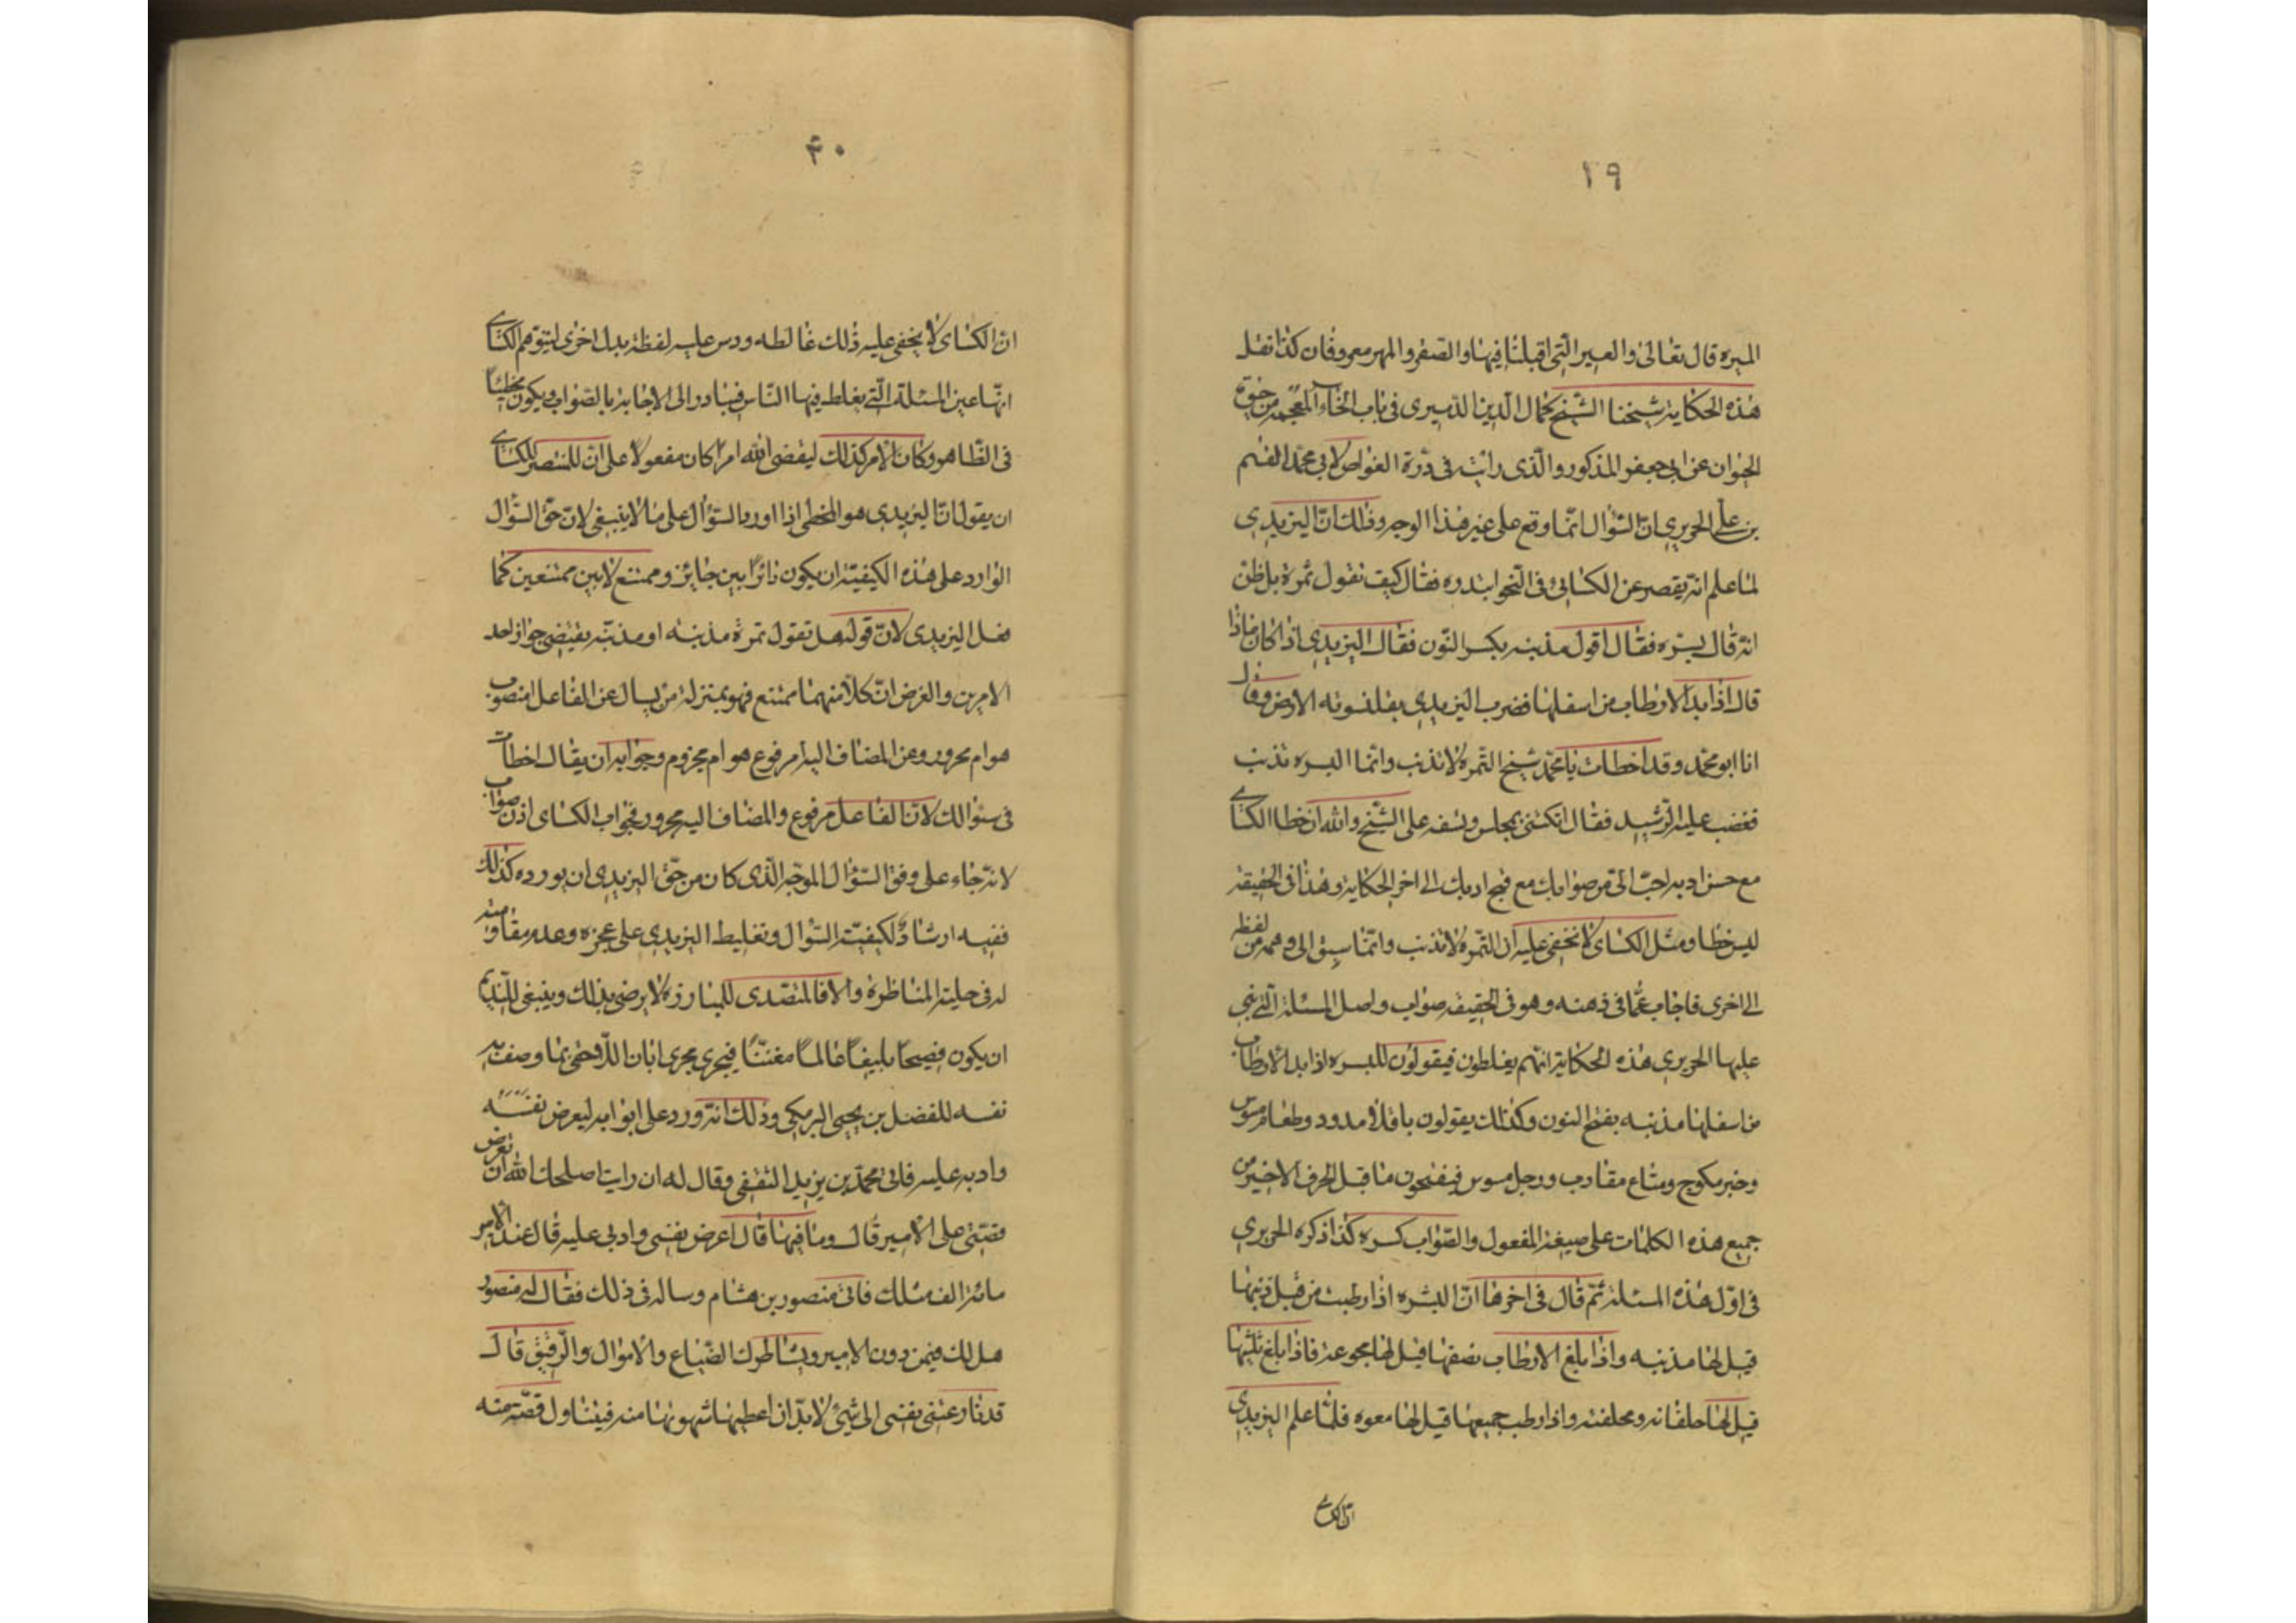 ٢٩
الميره قال تعالى والعير التى اقبلنا فيها والصفر والمهر معروفان كذا نقل
هذه الحكاية شيخنا الشيخ كمال الدين الدميرى فى باب الخاء المعجمه من حيوة
الحيوان عن ابى جعفر المذكور والذى رايت فى درة الغواص لابى محمد القسم
بن على الحريرى ان السؤال انما وقع على غير هذا الوجه وذلك ان اليزيدى
لما علم انه يقصر عن الكسائى فى النحو ابتدره فقال كيف تقول تمرة بل ظن
انه قال بسره فقال اقول مذنبه بكسر النون فقال اليزيدى اذا كان ماذا
قال اذا بدا الارطاب من اسفلها فضرب اليزيدى بقلنسوته الارض وقال
انا ابو محمد وقد اخطات يا محمد شيخ التمره لا تذنب وانما البسره تذنب
فغضب عليه الرشيد فقال اتكتنى بمجلسى وتسفه على الشيخ والله ان خطا الكسائى
مع حسن ادبه احب الى من صوابك مع قبح ادبك الى اخر الحكاية وهذا فى الحقيقة
ليس خطا ومثل الكسائى لا تخفى عليه ان التمره لا تذنب وانما سبق الى وهمه من لفظه
الى اخرى فاجاب عما فى ذهنه وهو فى الحقيقه صواب واصل المسئلة التى بنى
عليها الحريرى هذه الحكاية انهم يغلطون فيقولون للبسره اذا بدا الارطاب
من اسفلها مذنبه بفتح النون وكذلك يقولون باقلا مدود وطعام مسوس
وخبز مكرج ومتاع مقارب ورجل موسوس فيفتحون ما قبل الحرف الاخير من
جميع هذه الكلمات على صيغة المفعول والصواب كسره كذا ذكره الحريرى
فى اول هذه المسئلة ثم قال فى اخرها ان البسره اذا رطبت من قبل ذنبها
قيل لها مذنبه واذا بلغ الارطاب نصفها قيل لها مجزعة فاذا بلغ ثلثيها
قيل لها حلقانه ومحلقنه واذا رطب جميعها قيل لها معوه فلما علم اليزيدى
ان الكسائى
۴۰
ان الكسائى لا يخفى عليه ذلك غالطه ودس عليه لفظة بدل اخرى ليتوهم الكسائى
انها عين المسئلة التى يغلط فيها الناس فيبادر الى الاجابة بالصواب ويكون مخطئا
فى الظاهر وكان الامر كذلك ليقضى الله امرا كان مفعولا على ان للمنتصر للكسائى
ان يقول ان اليزيدى هو المخطى اذا اورد السؤال على ما لا ينبغى لان حق السؤال
الوارد على هذه الكيفية ان يكون دائرا بين جايز وممتنع لا بين ممتنعين كما
فعل اليزيدى لان قوله هل تقول تمرة مذنبه او مذنبه يقتضى جواز احد
الامرين والغرض ان كلا منهما ممتنع فهو بمنزلة من يسال عن الفاعل امنصوب
هو ام مجرور وعن المضاف اليه امرفوع هو ام مجزوم وجوابه ان يقال اخطات
فى سؤالك لان الفاعل مرفوع والمضاف اليه مجرور فجواب الكسائى اذن صواب
لانه جاء على وفق السؤال الموجه الذى كان من حق اليزيدى ان يورده كذلك
ففيه ارشاد لكيفية السؤال وتغليط اليزيدى على عجزه وعدم مقاومته
له فى حلية المناظرة والا فالمتصدى للمبارزه لا يرضى بذلك وينبغى للنديم
ان يكون فصيحا بليغا عالما مفننا فيجرى مجرى ابان اللاحقى بما وصف به
نفسه للفضل بن يحيى البرمكى وذلك انه ورد على ابوابه ليعرض نفسه
وادبه عليه فاتى محمد بن يزيد الثقفى وقال له ان رايت اصلحك الله ان تعرض
قصتى على الامير قال وما فيها قال اعرض نفسى وادبى عليه قال عند الامير
مائة الف مثلك فاتى منصور بن هشام وساله فى ذلك فقال له منصور
هل لك فيمن دون الامير ويشاطرك الضياع والاموال والرقيق قال
قد نازعتنى نفسى الى شئ لابد ان اعطيها شهوتها منه فيتناول قصته منه